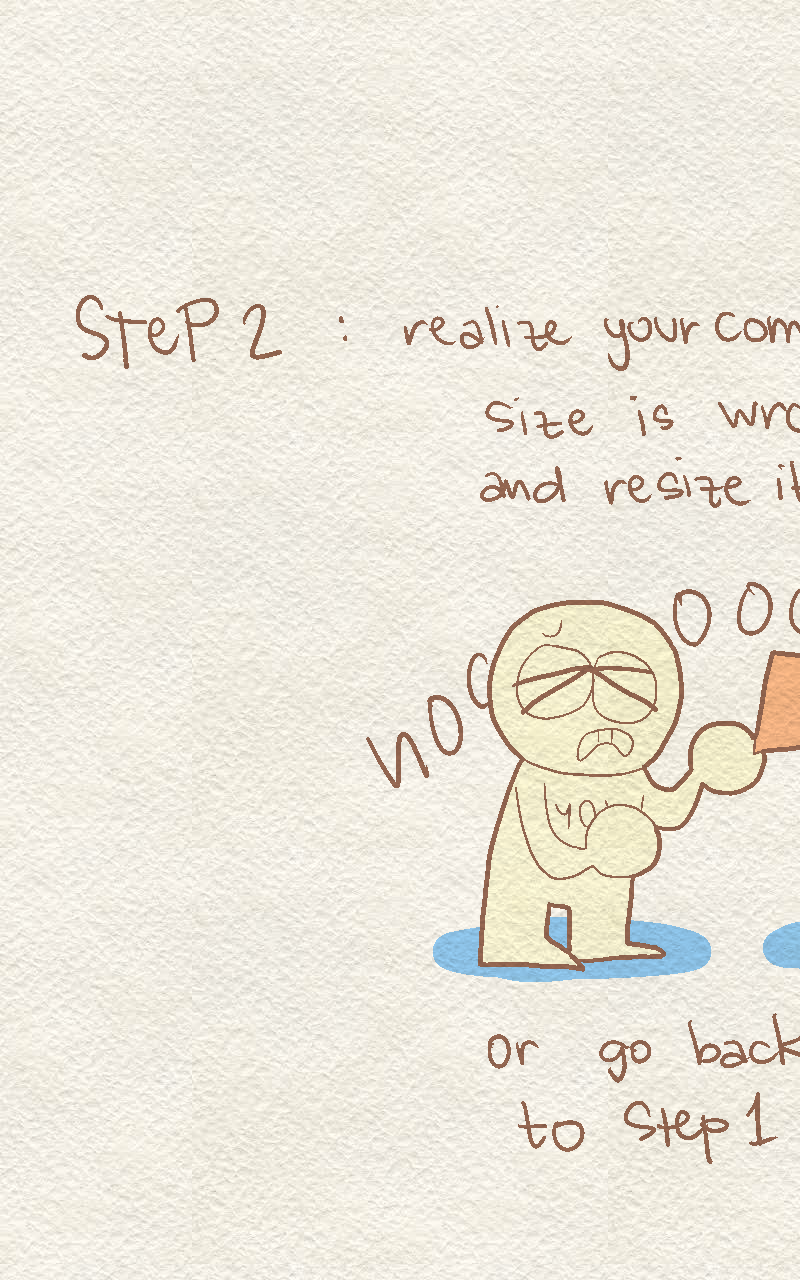 STeP 2 : realize your com
size is wro
and resize it
noo 000
you
or go back
to Step 1